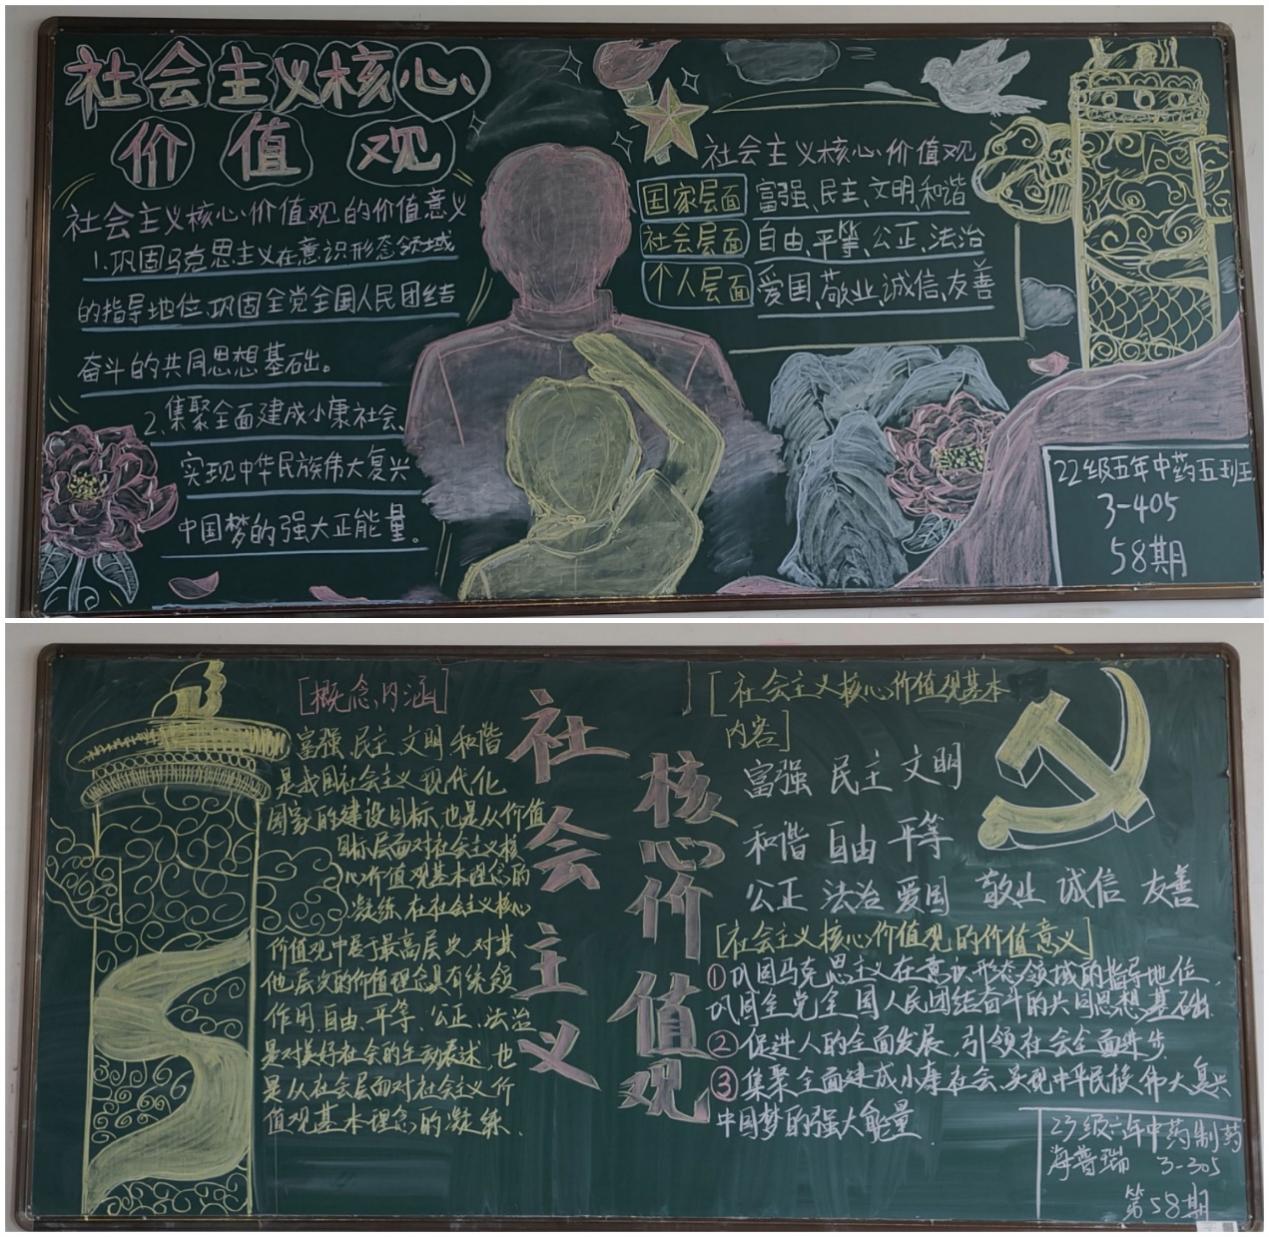 社会主义核心
价值观
社会主义核心价值观的价值意义
1.巩固马克思主义在意识形态领域
的指导地位、巩固全党全国人民团结
奋斗的共同思想基础。
2、集聚全面建成小康社会、
实现中华民族伟大复兴
中国梦的强大正能量。
社会主义核心价值观
国家层面 富强、民主、文明、和谐
社会层面 自由、平等、公正、法治
个人层面 爱国、敬业、诚信、友善
22级五年中药五班
3-405
58期
[概念内涵]
富强 民主 文明 和谐
是我国社会主义现代化
国家的建设目标,也是从价值
目标层面对社会主义核
心价值观基本理念的
凝练,在社会主义核心
价值观中居于最高层次,对其
他层次的价值理念具有统领
作用.自由、平等、公正、法治
是对美好社会的生动表述,也
是从社会层面对社会主义价
值观基本理念的凝练.
社会主义
核心价值观
[社会主义核心价值观基本
内容]
富强 民主 文明
和谐 自由 平等
公正 法治 爱国 敬业 诚信 友善
[社会主义核心价值观的价值意义]
①巩固马克思主义在意识形态领域的指导地位,
巩固全党全国人民团结奋斗的共同思想基础.
②促进人的全面发展,引领社会全面进步.
③集聚全面建成小康社会、实现中华民族伟大复兴
中国梦的强大能量.
23级六年中药制药
海普瑞 3-305
第58期